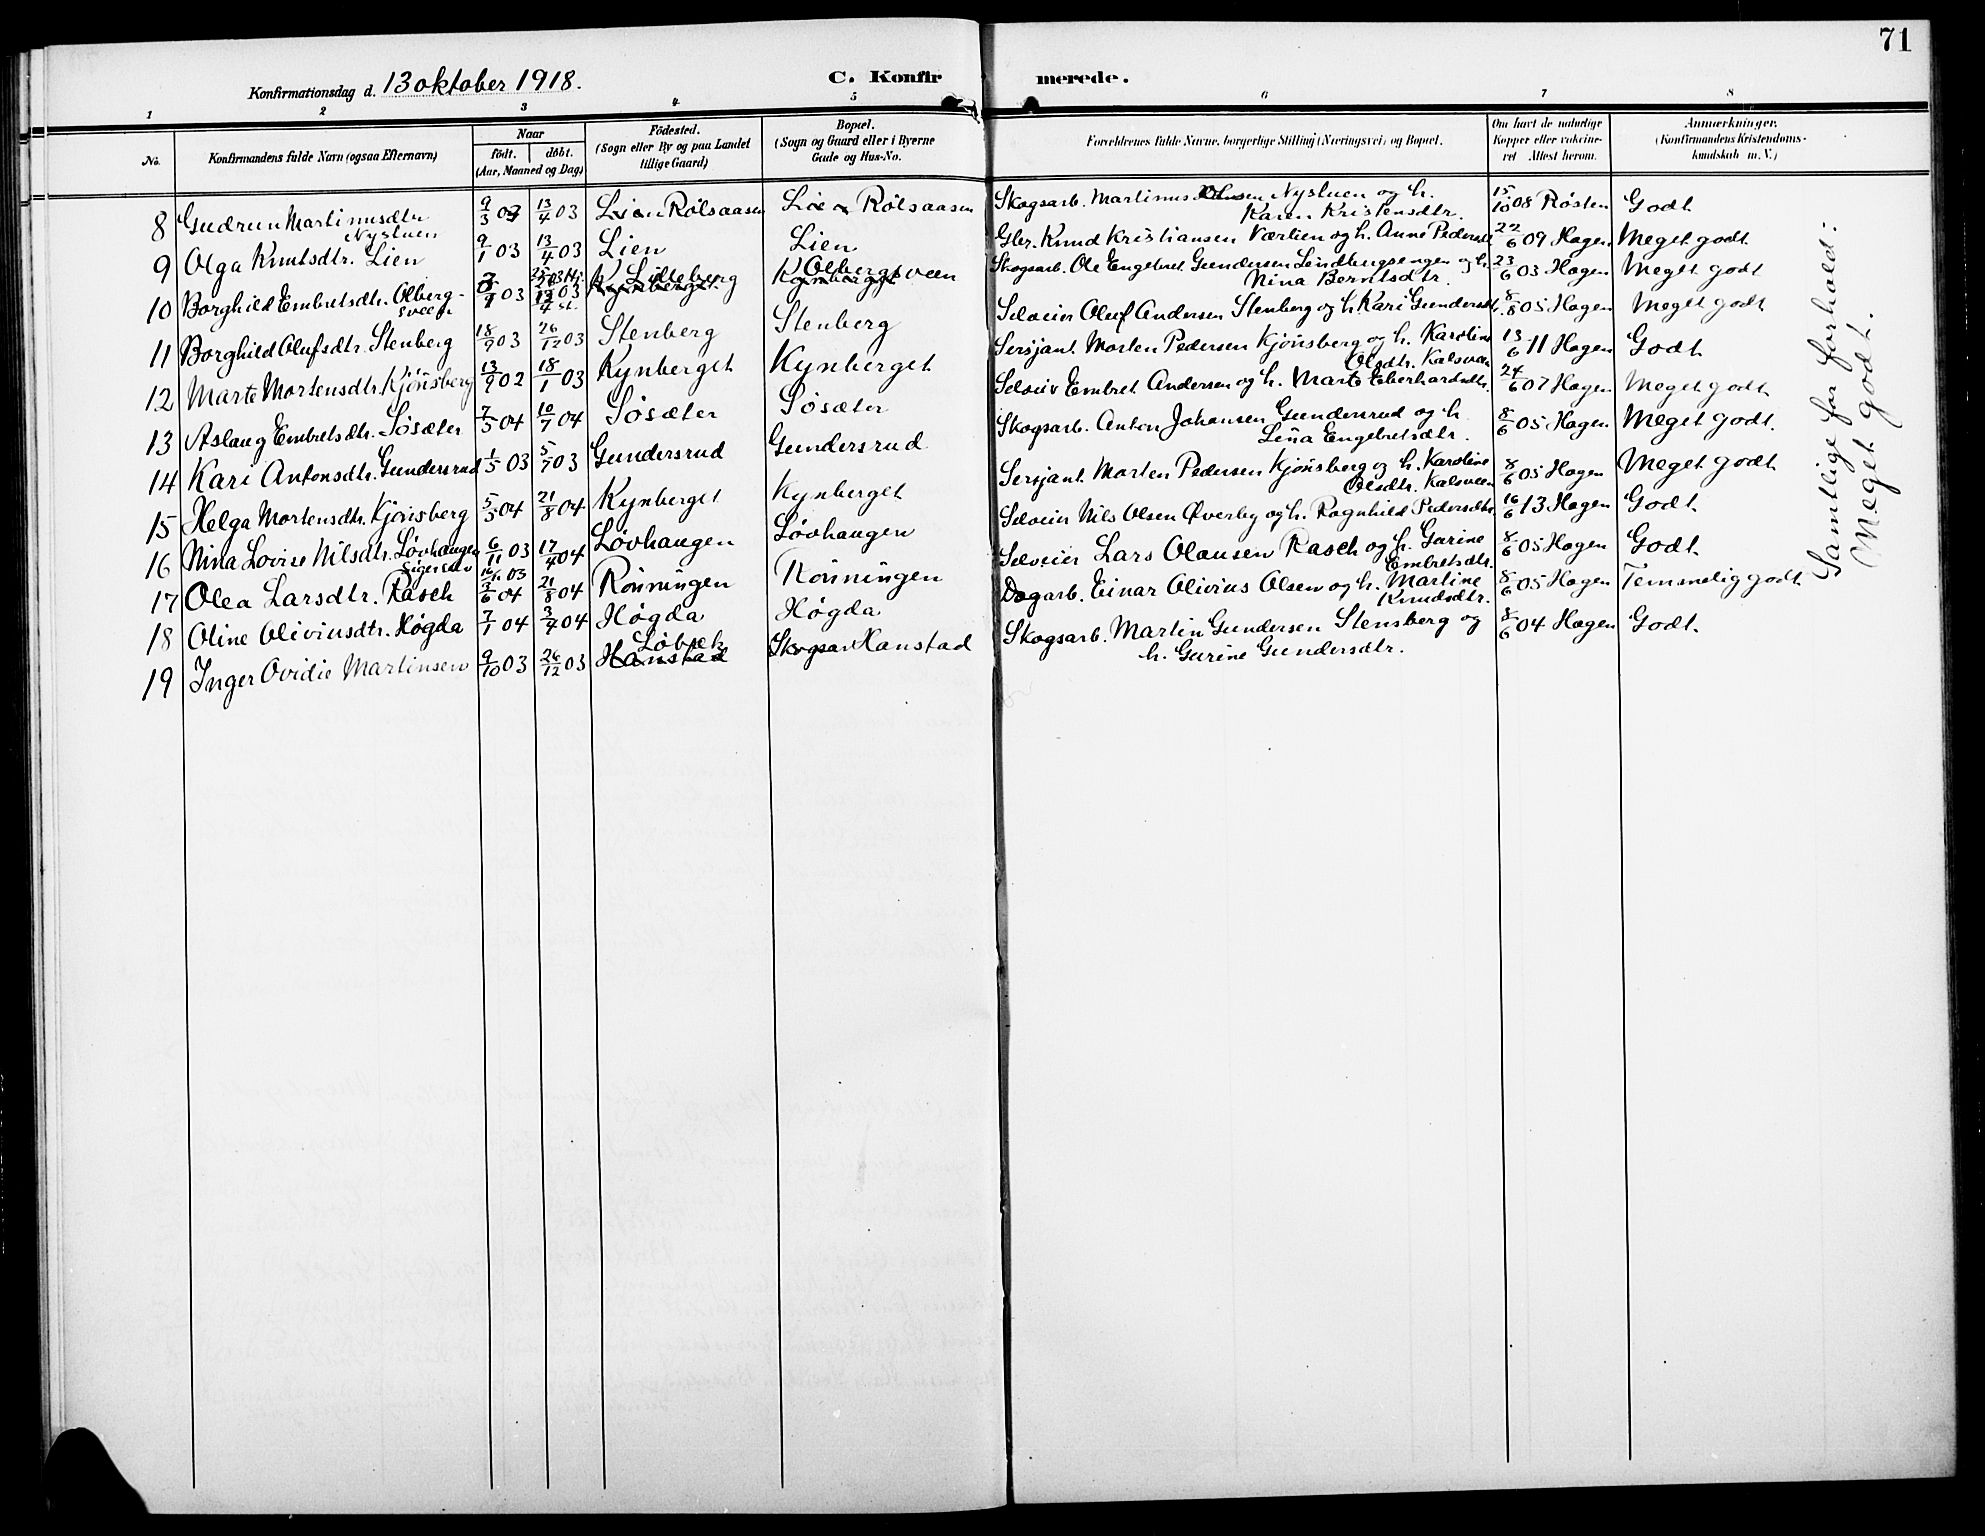 71
Konfirmationsdag d. 13 oktober 1918.
C. Konfirmerede.
1 2 3 4 5 6 7 8
No.
Konfirmandens fulde Navn (ogsaa Efternavn)
Naar
födt. döbt.
(Aar, Maaned og Dag)
Födested.
(Sogn eller By og paa Landet
tillige Gaard)
Bopæl.
(Sogn og Gaard eller i Byerne
Gade og Hus-No.
Forældrenes fulde Navne, borgerlige Stilling (Næringsvei) og Bopæl.
Om havt de naturlige
Kopper eller vakcine-
ret Attest herom.
Anmærkninger.
(Konfirmandens Kristendoms-
kundskab m. V.)
8 Gudrun Martinusdtr Nystuen 9/3 03 13/4 03 Lien Rölsaasen Lien Rölsaasen Skogsarb. Martinus Nystuen og h. Karen Kristensdtr. 15/10 08 Røsten Godt
9 Olga Knutsdtr. Lien 9/1 03 13/4 03 Lien Lien Gbr. Knud Kristiansen Værlien og h. Anne Pedersdtr 22/6 09 Hagen Meget godt
10 Borghild Embretsdtr. Olberg-
sveen 03 13/4 03 Kynberget Lidteberg Kynberget Olbergsveen Skogsarb. Ole Engebret Gundersen Lindbergsengen og h. Nina Berntsdtr. 23/6 03 Hagen Meget godt
11 Borghild Olufsdtr. Stenberg 18/9 03 26/12 03 Stenberg Stenberg Selveier Oluf Andersen Stenberg og h. Kari Gundersdtr. 8/8 05 Hagen Meget godt
12 Marte Mortensdtr. Kjönsberg 13/9 02 18/1 03 Kynberget Kynberget Sersjant Morten Pedersen Kjönsberg og h. Karoline Olsdtr. Kalsveen 13/6 11 Hagen Godt
13 Aslaug Embretsdtr. Søsæter 7/5 04 10/7 04 Søsæter Søsæter Selveier Embret Andersen og h. Marte Eberhardsdtr. 24/6 07 Hagen Meget godt
14 Kari Antonsdtr. Gundersrud 1/5 03 5/7 03 Gundersrud Gundersrud Skogsarb. Anton Johansen Gundersrud og h. Lina Engebretsdtr. 8/6 05 Hagen Meget godt.
15 Helga Mortensdtr. Kjönsberg 5/5 04 21/8 04 Kynberget Kynberget Sersjant Morten Pedersen Kjönsberg og h. Karoline Olsdtr. Kalsveen 8/6 05 Hagen Meget godt
16 Nina Lovise Nilsdtr. Løvhaugen 6/11 03 17/4 04 Løvhaugen Løvhaugen Selveier Nils Olsen Øverby og h. Ragnhild Pedersdtr. 16/6 13 Hagen Godt
17 Olea Larsdtr. Rasch 3/6 04 21/8 04 Rönningen Rönningen Selveier Lars Olausen Rasch og h. Gurine Embretsdtr. 8/6 05 Hagen Godt
18 Oline Oliviusdtr. Høgda 7/1 04 3/4 04 Høgda Høgda Dagarb. Einar Olivius Olsen og h. Martine Knudsdtr. 8/6 05 Hagen Temmelig godt
19 Inger Ovidie Martinsen 9/10 03 26/12 03 Hanstad Løbæk Hanstad Skogsarb. Martin Gundersen Stensberg og
h. Gurine Gundersdtr. 8/6 04 Hagen Godt.
Samtlige for forhold:
Meget godt.